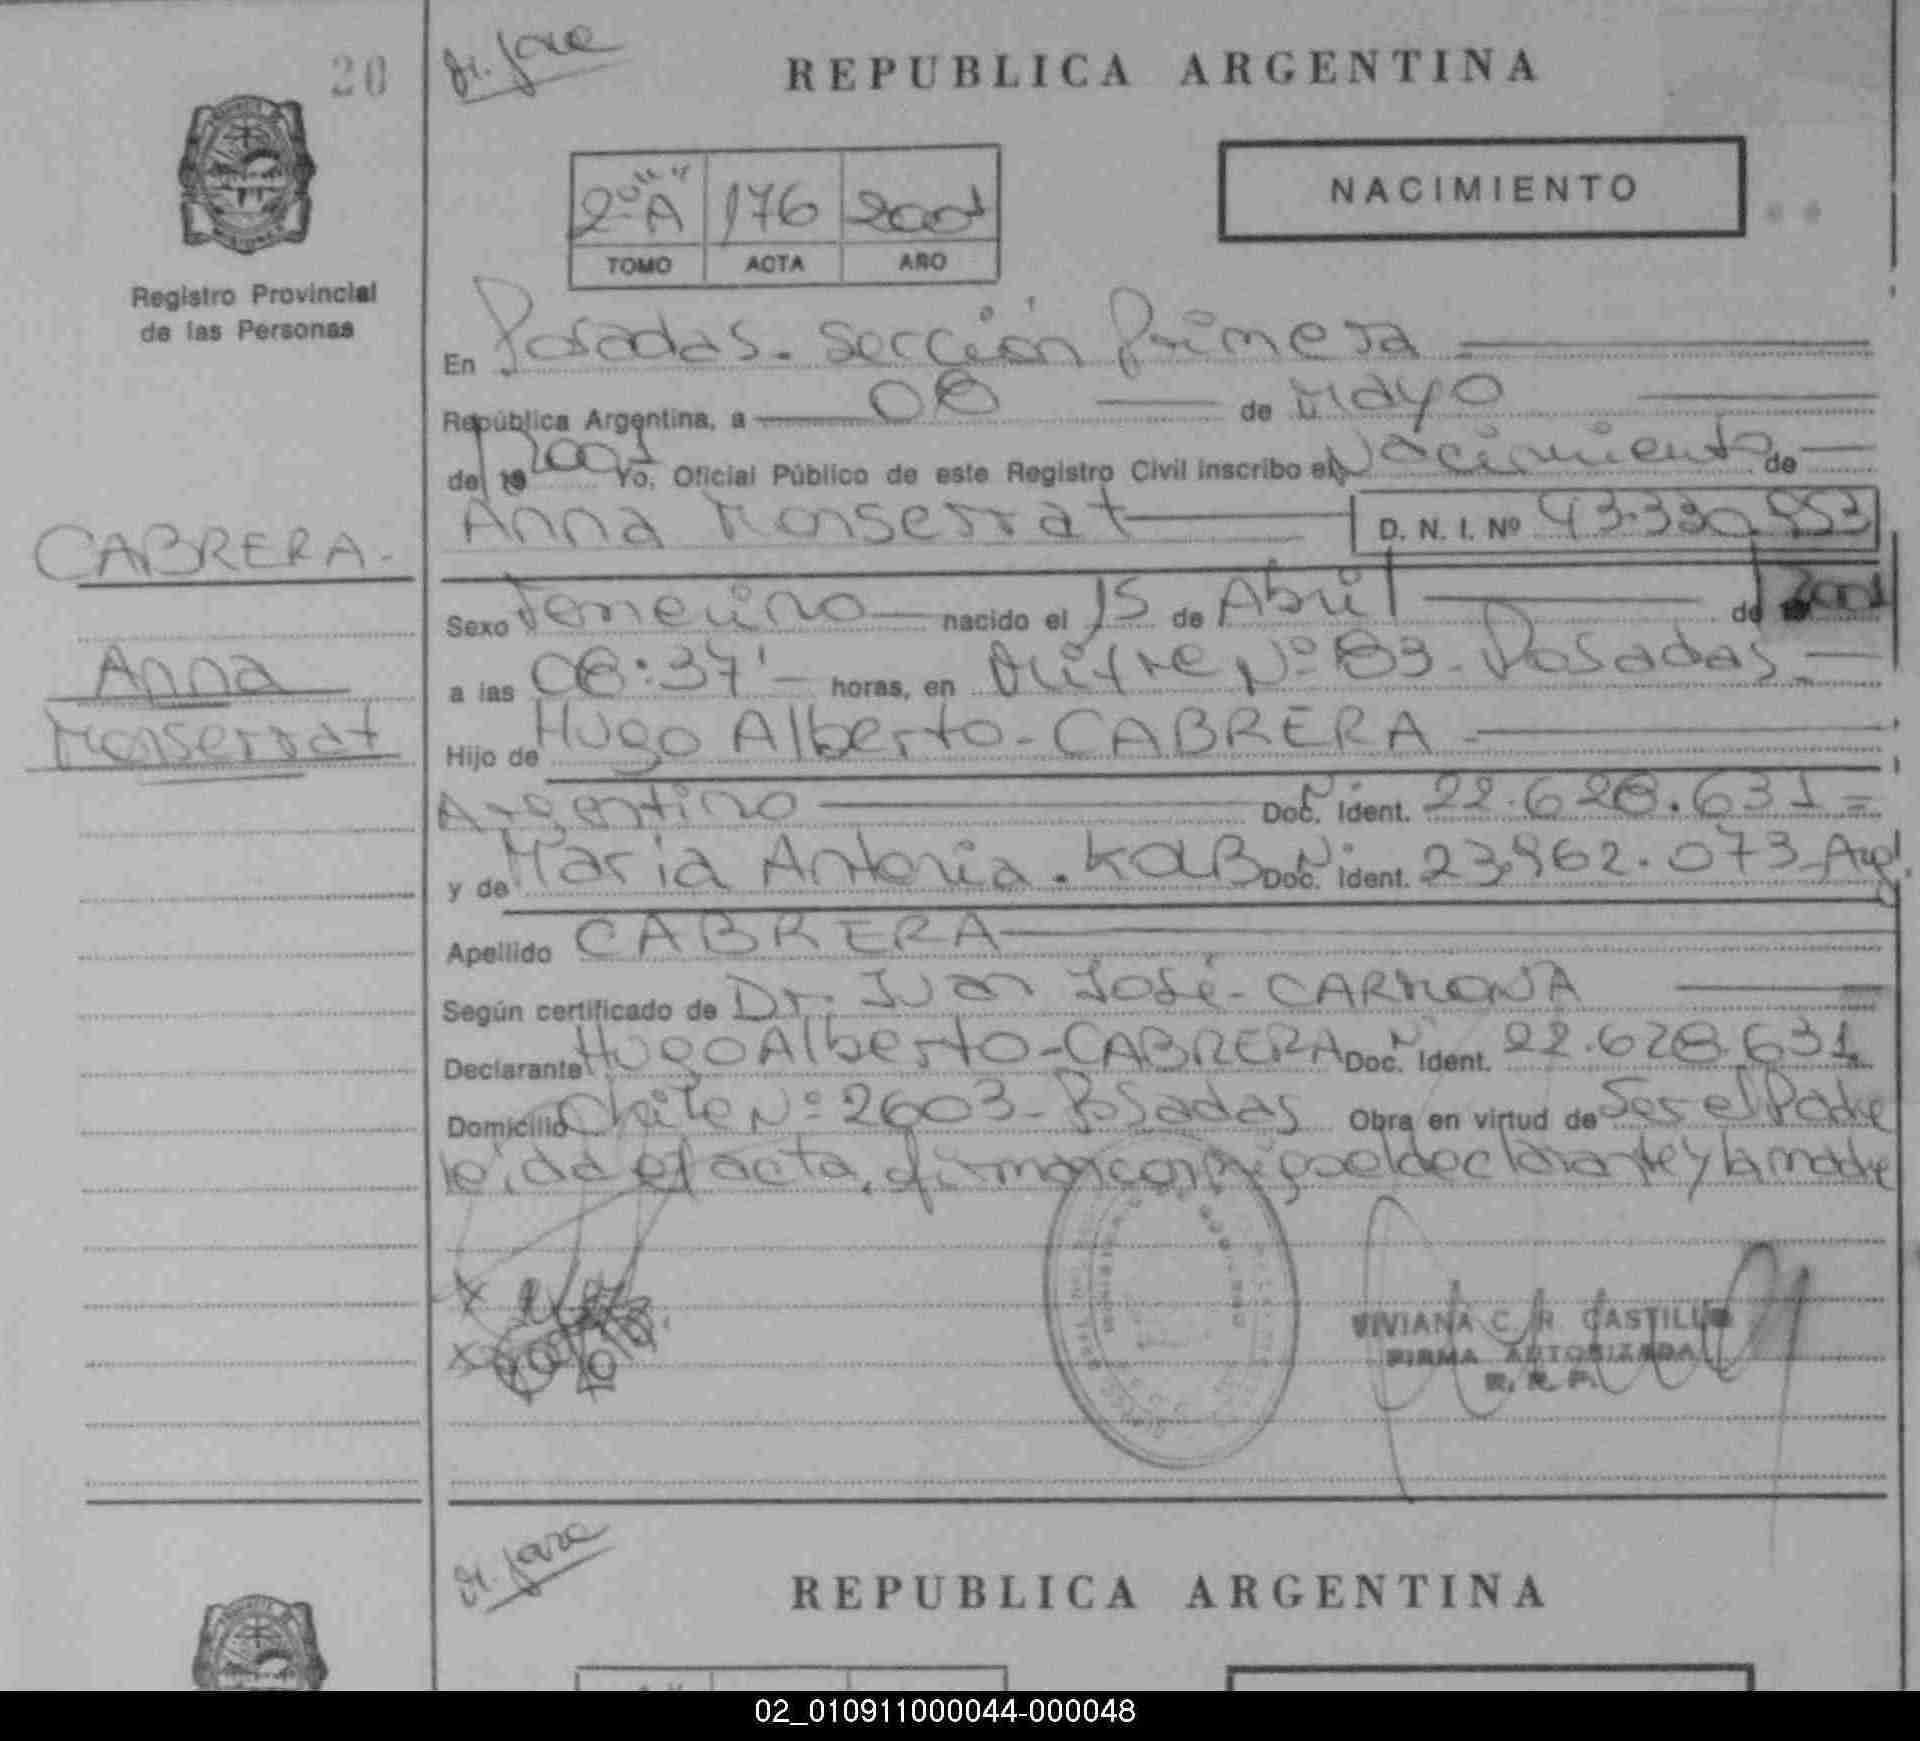 20
REPUBLICA ARGENTINA
NACIMIENTO
2º A 176 2001
TOMO ACTA AÑO
Registro Provincial
de las Personas
En Posadas. Sección Primera
República Argentina, a 08 de Mayo
de 19 2001 Yo, Oficial Público de este Registro Civil inscribo el Nacimiento de
Anna Monserrat D. N. I. Nº 43.330.953
CABRERA.
Sexo Femenino nacido el 15 de Abril de 2001
Anna
a las 08:37' horas, en Mitre Nº 83 - Posadas.
Monserrat
Hijo de Hugo Alberto - CABRERA
Argentino Doc. Ident. 22.628.631 =
y de Maria Antonia . KOLB Doc. Ident. 23.962.073 Arg.
Apellido CABRERA
Según certificado de Dr. Juan José - CARMONA
Declarante Hugo Alberto - CABRERA Doc. Ident. 22.628.631
Domicilio Chile Nº 2603 - Posadas Obra en virtud de Ser el Padre
leída el acta, firman conmigo el declarante y la madre
VIVIANA C. R. CASTILLO
FIRMA AUTORIZADA
R. R. P.
REPUBLICA ARGENTINA
02_010911000044-000048